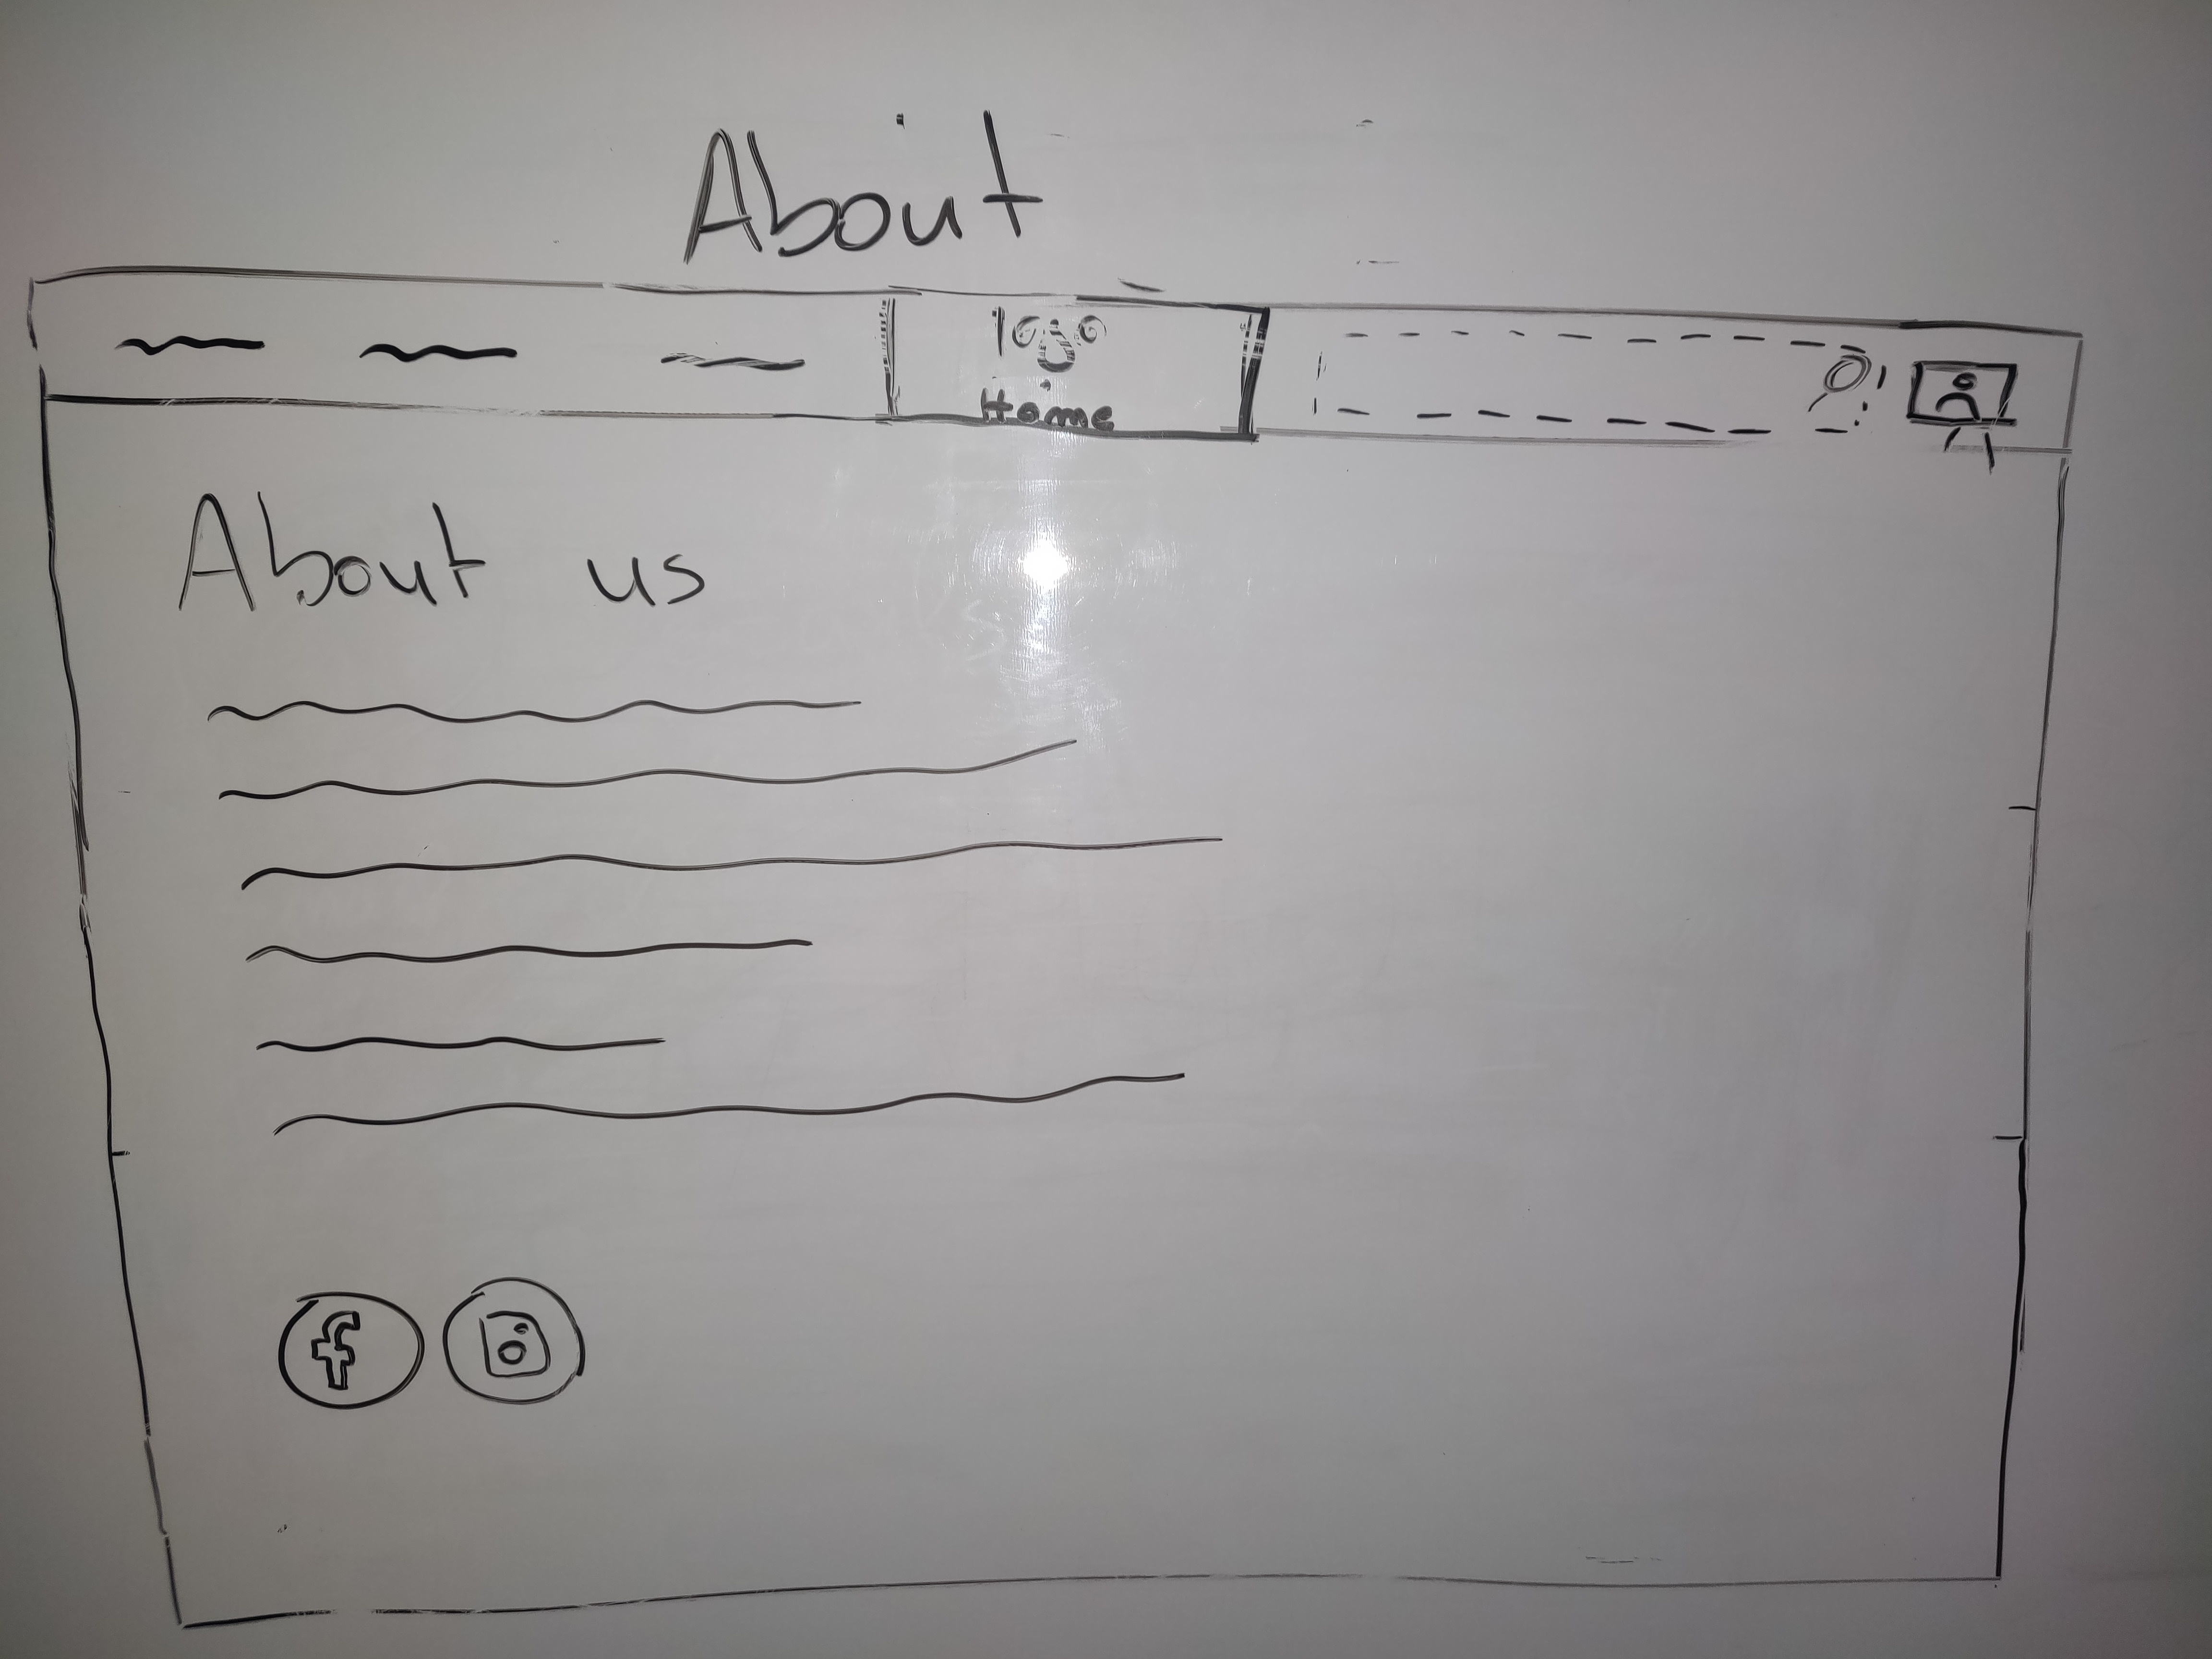 About
logo
Home
About us
f